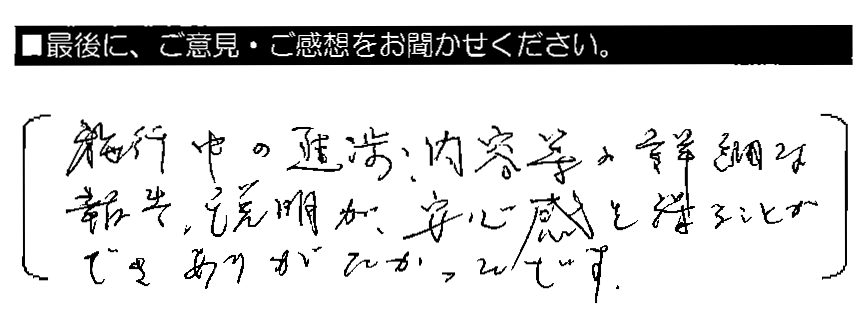 ■最後に、ご意見・ご感想をお聞かせください。
施行中の進渉、内容等の詳細な
報告、説明が、安心感を得ることが
できありがたかったです。